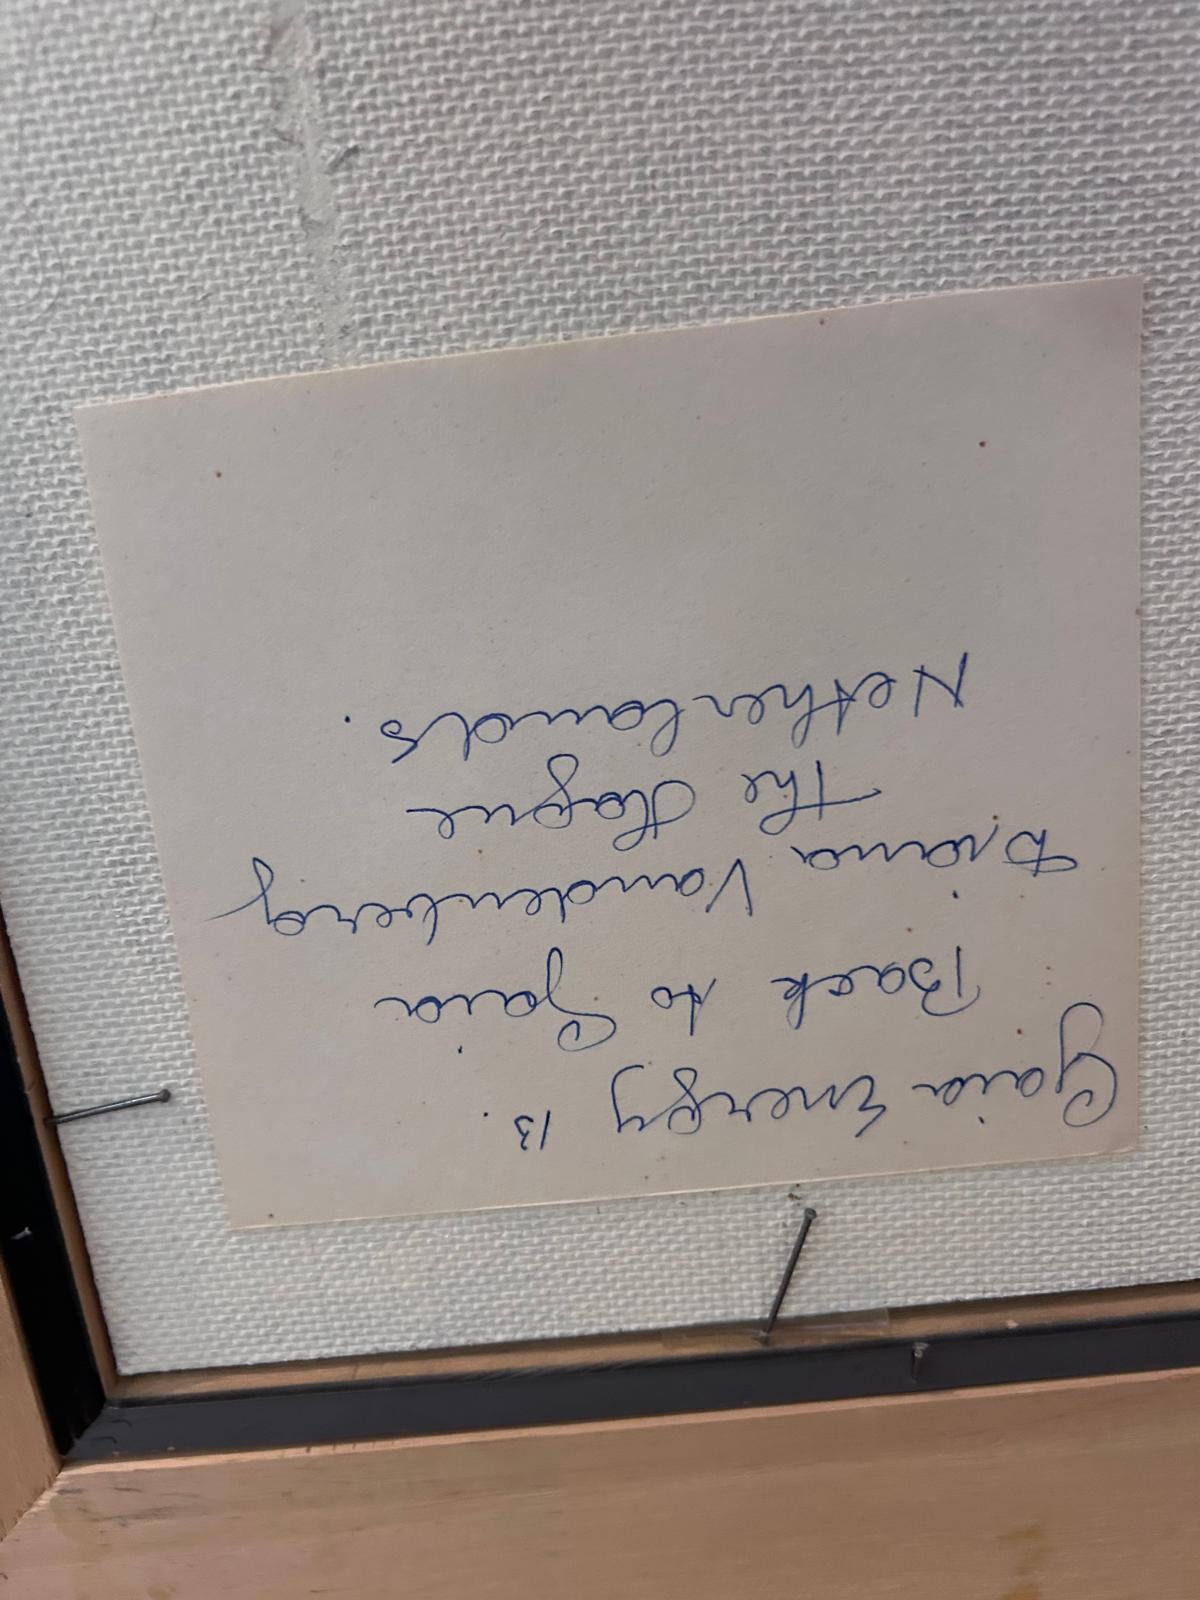 Gaia Energy 13.
Back to Gaia
Diana Vandenberg
The Hague
Netherlands.